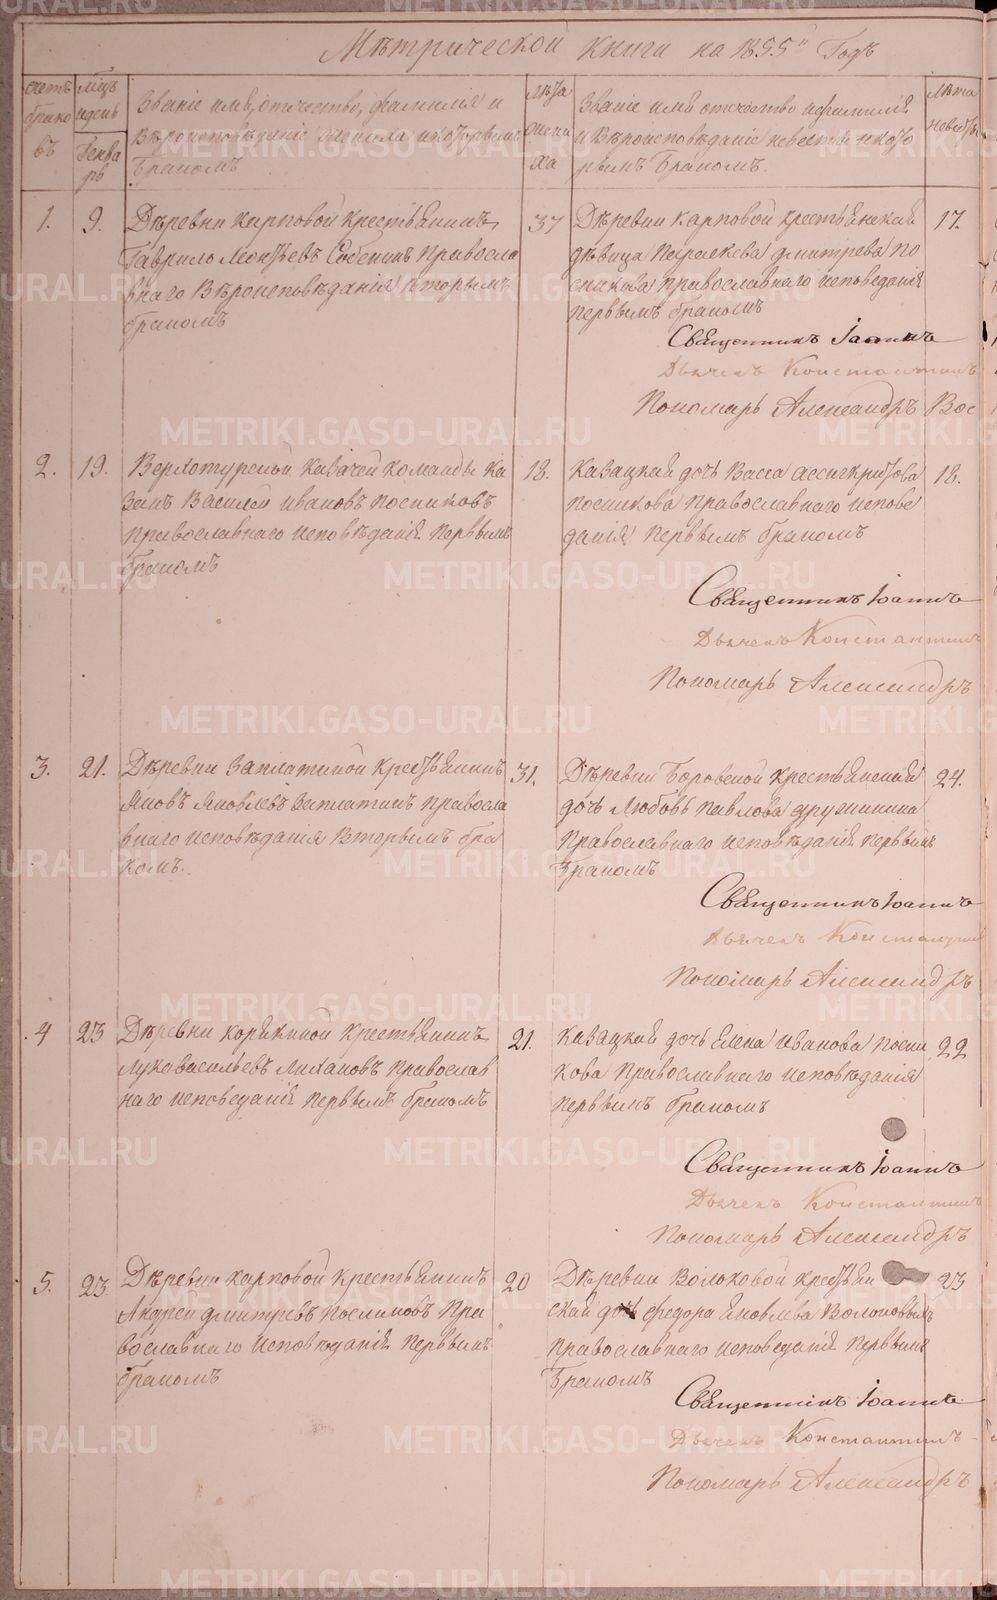 Мѣтрической книги на 1855й Годъ
счетъ
брако
въ
мцъ
и день
Генва
рь
Званіе имя, отчество, фамилія и
Вѣроисповѣданіе жениха и которымъ
Бракомъ
Лѣта
жени
ха
Званіе имя отчество и фамилія
и Вѣроисповѣданіе невесты и кото
рымъ Бракомъ
Лѣта
невесты
1.
9.
Дѣревни Карповой крестьянинъ
Гаврило Леонтьевъ Собенинъ Правосла
внаго Вѣроисповѣданія вторымъ
бракомъ
37
Дѣревни Карповой крестьянская
дѣвица Параскева Дмитрева По
сникова православнаго исповеданія
первымъ бракомъ
17.
Священникъ Іоаннъ
Дьячекъ Константинъ
Пономарь Александръ Вос
2.
19.
Верхотурской казачей команды ка
закъ Василей Ивановъ Посниковъ
православнаго исповѣданія первымъ
бракомъ
18.
Казацкая дочь Васса
Посникова Православнаго испове
данія первымъ бракомъ
18.
Священникъ Іоаннъ
Дьячекъ Константинъ
Пономарь Александръ
3.
21.
Дѣревни Заплатиной крестьянинъ
Яковъ Яковлевъ Заплатинъ правосла
внаго исповѣданія Вторымъ бра
комъ.
31.
Дѣревни Боровской крестьянская
дочь Любовь Павлова Дружинина
Православнаго исповѣданія первымъ
Бракомъ
24.
Священникъ Іоаннъ
Дьячекъ Константинъ
Пономарь Александръ
4
23
Дѣревни Корякиной крестьянинъ
Лука Васильевъ Лихановъ православ
наго исповеданія первымъ бракомъ
21.
Казацкая дочь Елена Иванова Посни
кова Православнаго исповѣданія
первымъ бракомъ
22
Священникъ Іоаннъ
Дьячекъ Константинъ
Пономарь Александръ
5.
23.
Дѣревни Карповой крестьянинъ
Андрей Дмитревъ Посниковъ Пра
вославнаго исповѣданія первымъ
бракомъ
20
Дѣревни Волоковой крестьян
ская дочь Федора Яковлева Волоковыхъ
православнаго исповеданія первымъ
Бракомъ
23
Священникъ Іоаннъ
Дьячекъ Константинъ
Пономарь Александръ
METRIKI.GASO-URAL.RU